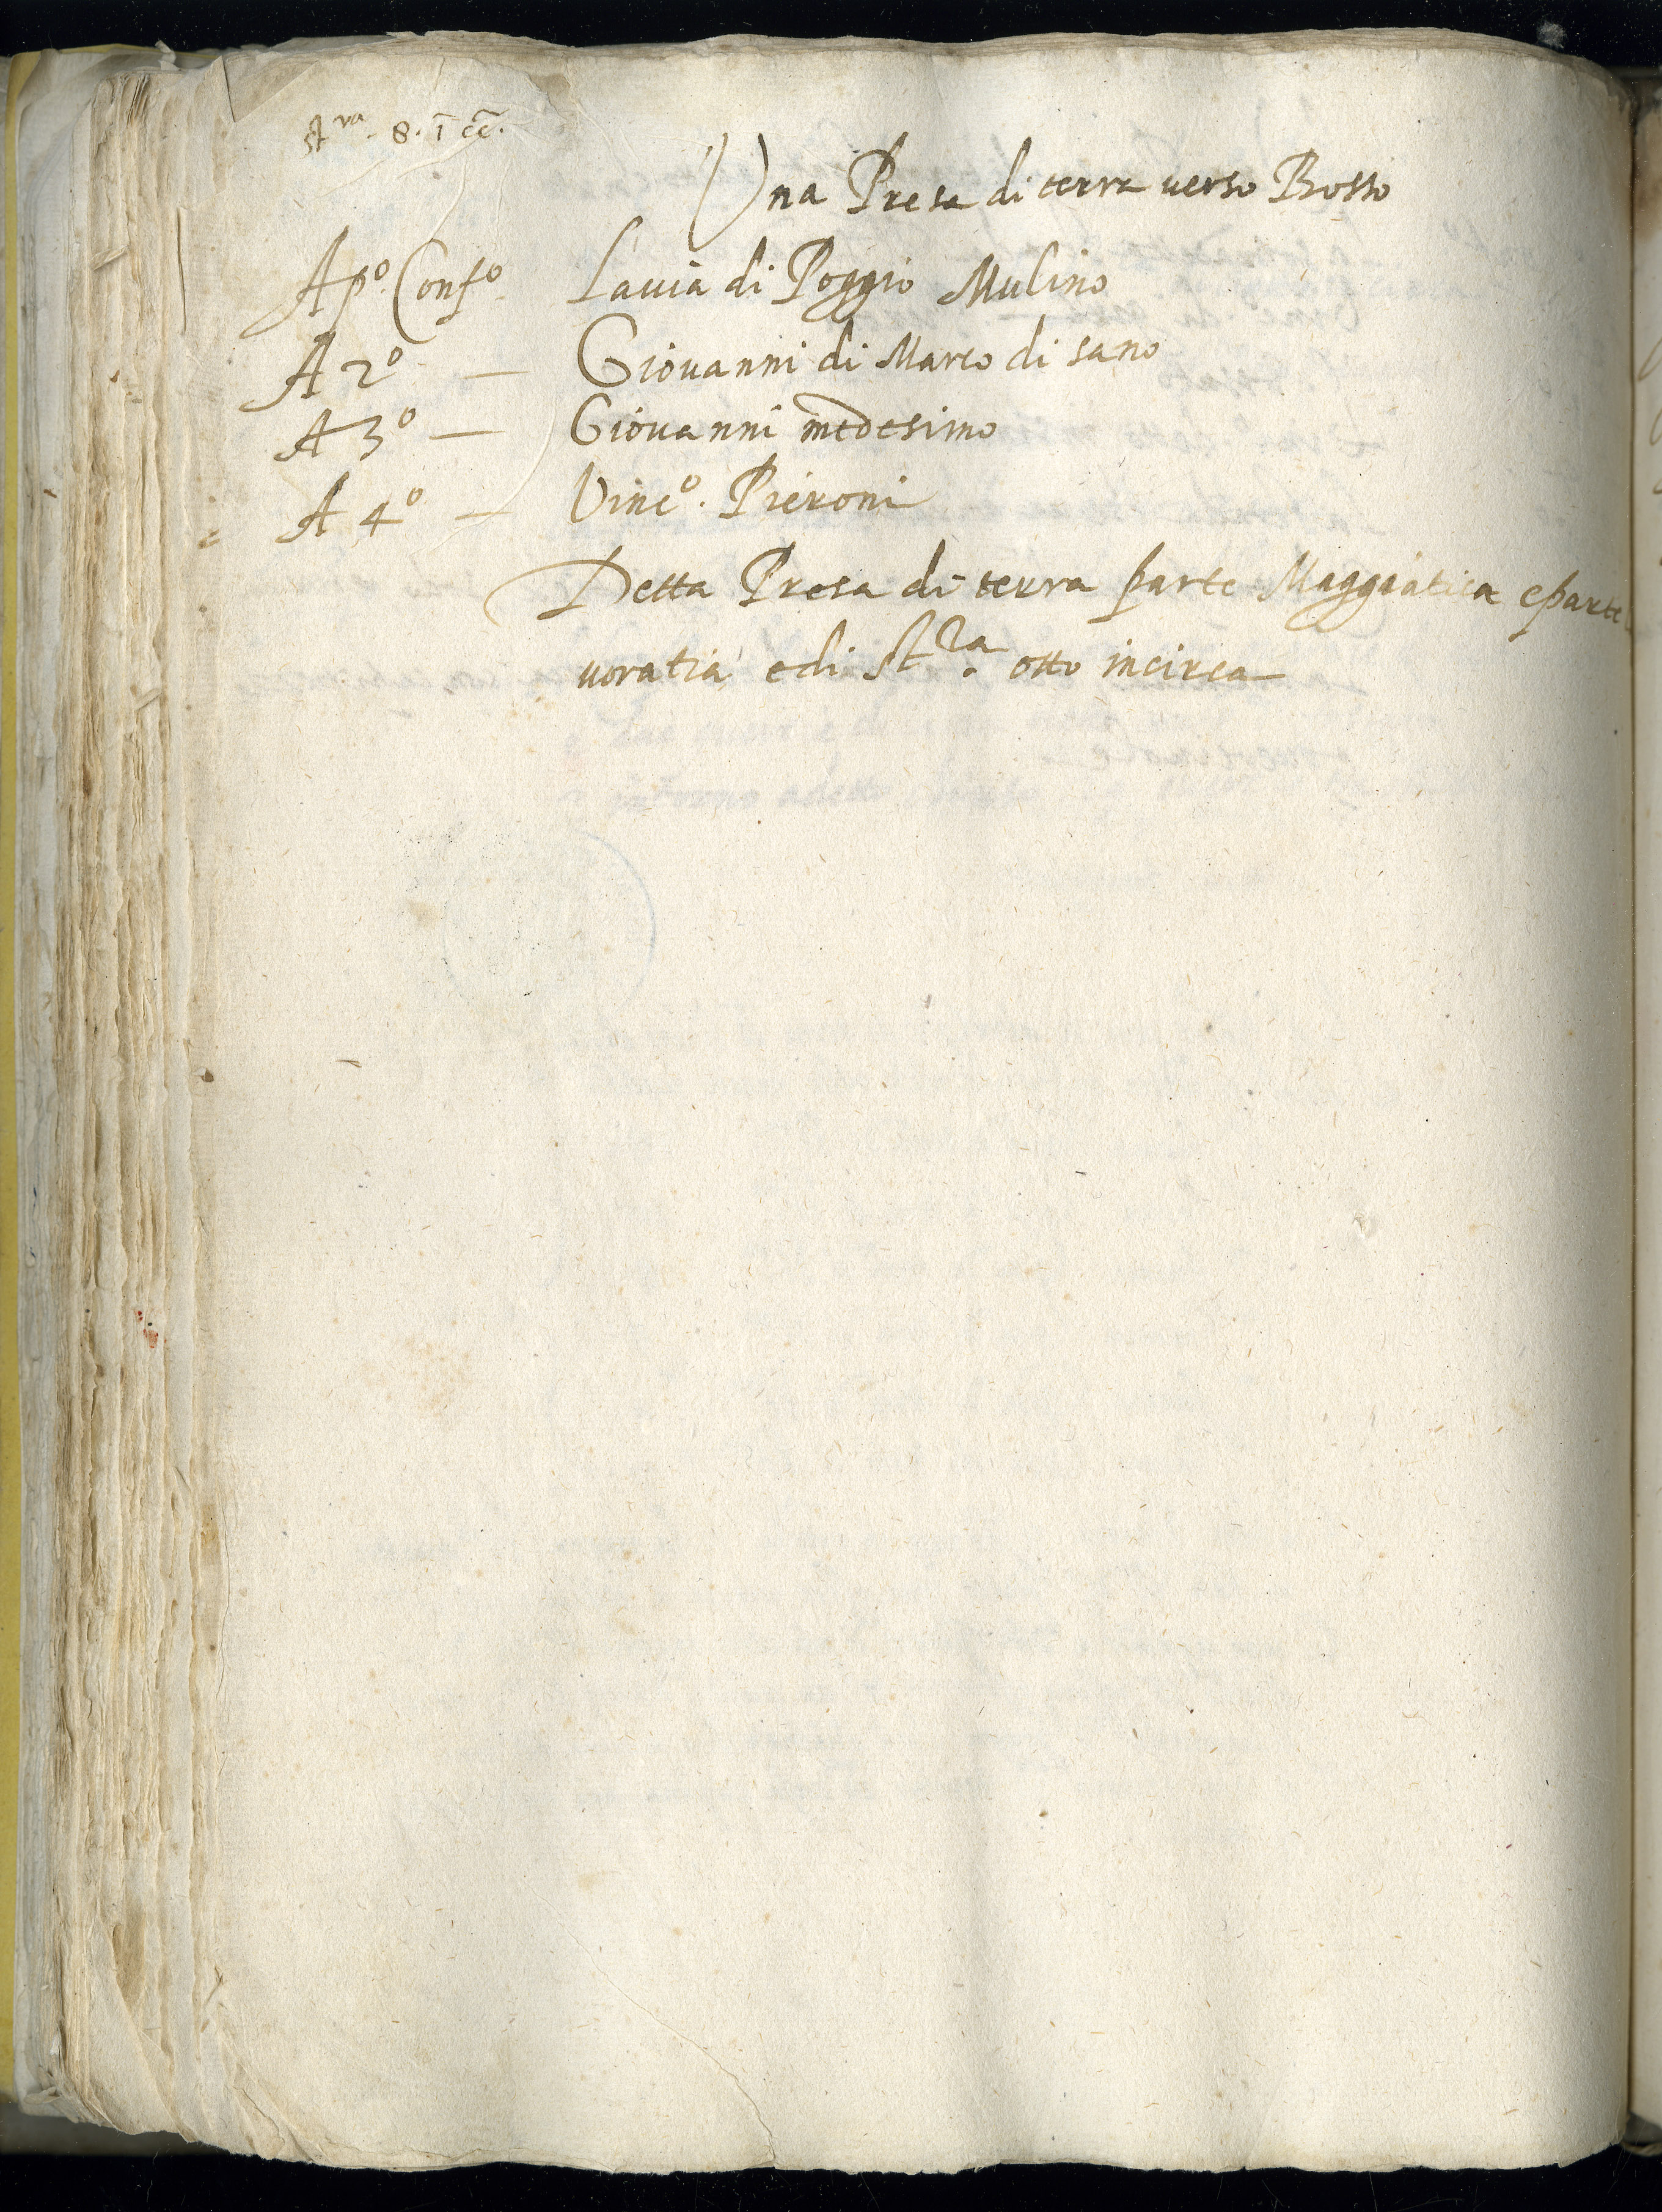 st.ra 8. i cc.
Una Presa di terra verso Bosso
A p.o Conf.o La uia di Poggio Mulino
A 2.o — Giouanni di Marco di sano
A 3.o — Giouanni medesimo
A 4.o — Vinc.o Pieroni
Detta Presa di terra parte Maggiatica e parte
uoratia e di St.ra otto incirca